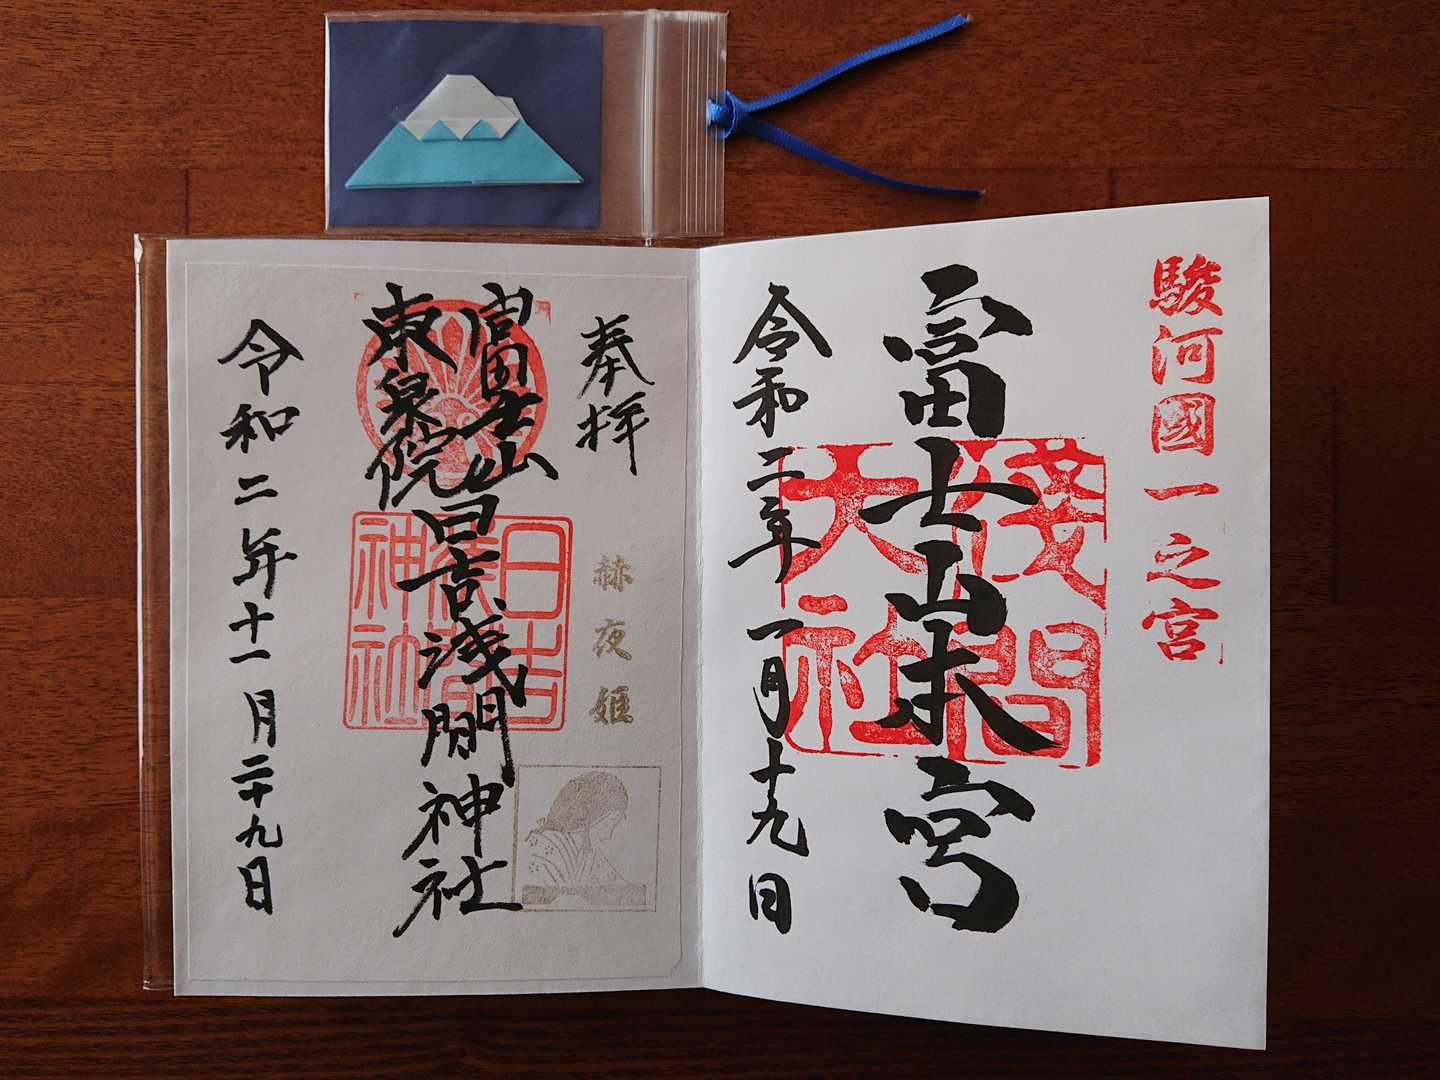 駿河國一之宮
富士山本宮
浅間大社
令和二年一月十九日
奉拝
赫夜姫
富士山
東泉院
日吉浅間神社
日吉浅間神社
令和二年十一月二十九日